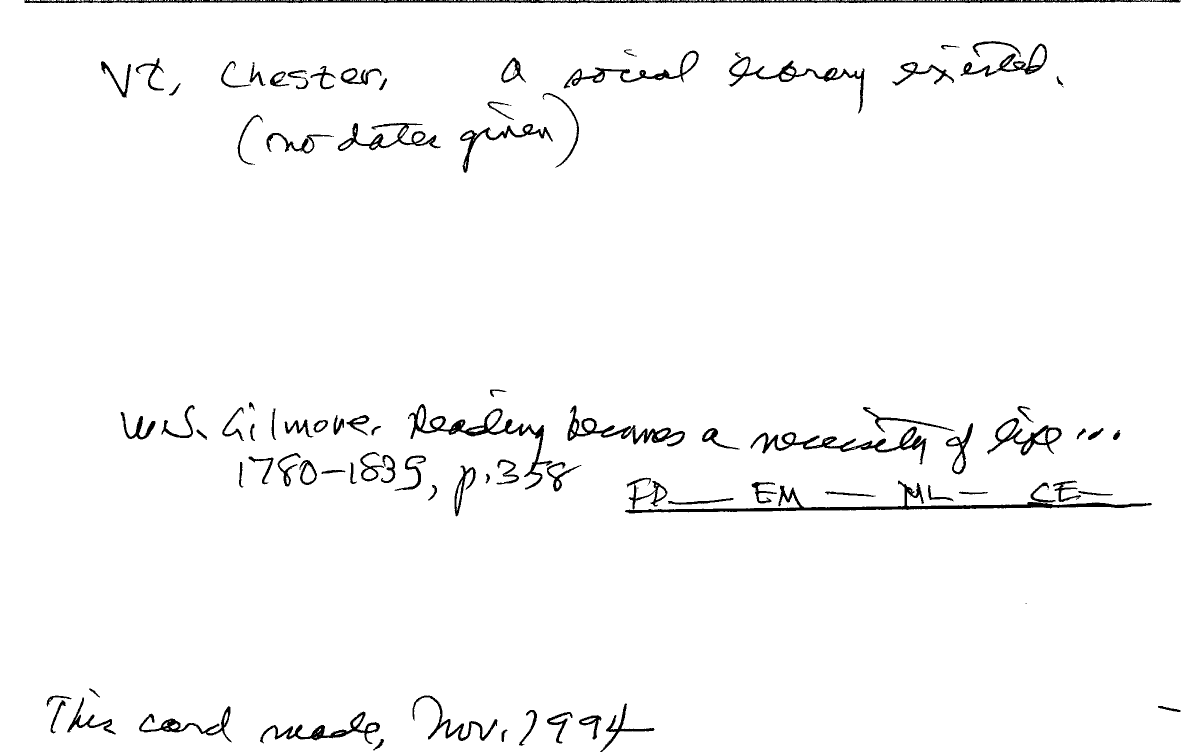 Vt, Chester, a social library existed.
(no dates given)
W.S. Gilmore, Reading becomes a necessity of life...
1780-1835, p.358
FD— EM — ML— CE—
This card made, Nov. 1994